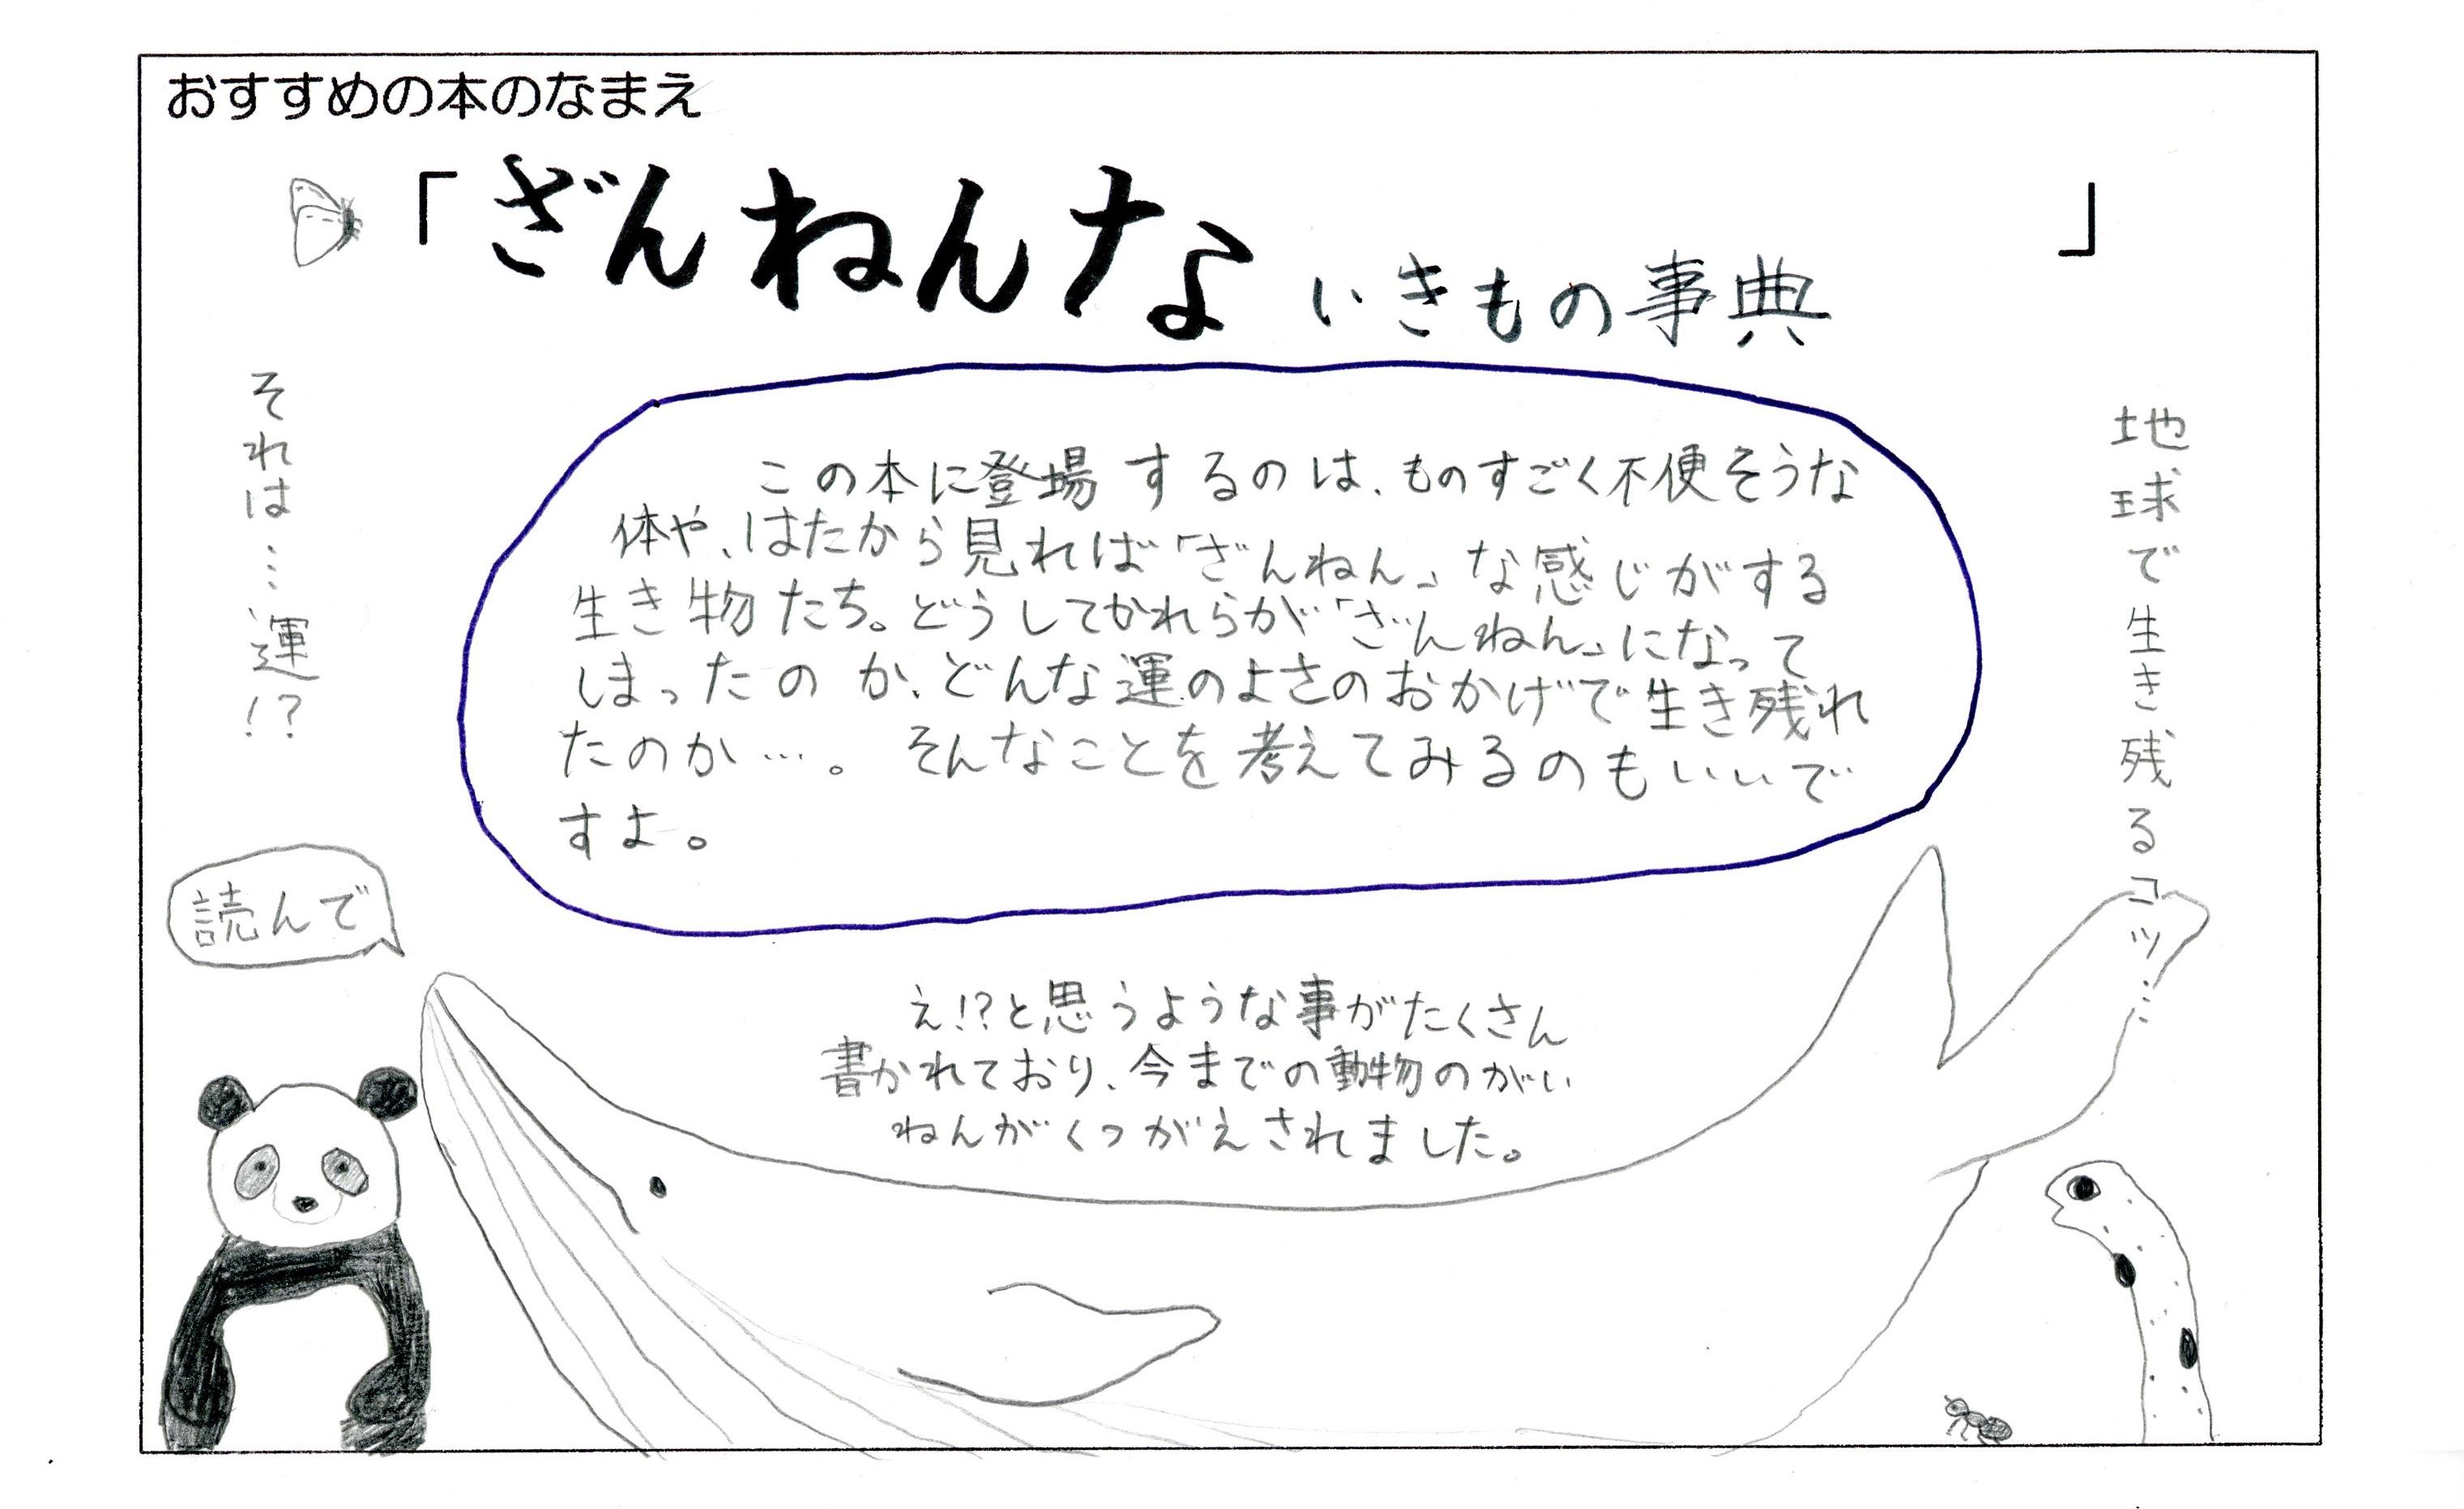 おすすめの本のなまえ
「ざんねんな いきもの事典」
地球で生き残るコツ…
それは…運!?
この本に登場するのは、ものすごく不便そうな
体や、はたから見れば「ざんねん」な感じがする
生き物たち。どうしてかれらが「ざんねん」になって
しまったのか、どんな運のよさのおかげで生き残れ
たのか…。そんなことを考えてみるのもいいで
すよ。
読んで
え!?と思うような事がたくさん
書かれており、今までの動物のがい
ねんがくつがえされました。